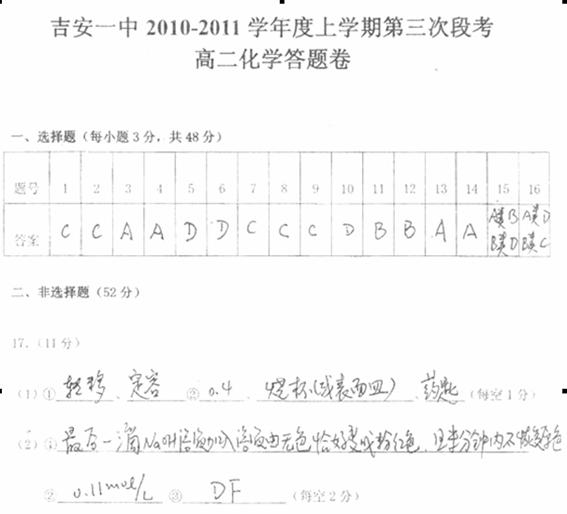 吉安一中 2010-2011 学年度上学期第三次段考
高二化学答题卷
一、选择题（每小题 3 分，共 48 分）
题号 1 2 3 4 5 6 7 8 9 10 11 12 13 14 15 16
答案 C C A A D D C C C D B B A A A类B B类D A类D B类C
二、非选择题（52 分）
17.（11 分）
（1）① 转移、定容 ② 0.4、烧杯(或表面皿)、药匙（每空 1 分）
（2）① 最后一滴NaOH溶液加入溶液由无色恰好变成粉红色，且半分钟内不恢复原色
② 0.11mol/L ③ DF（每空 2 分）